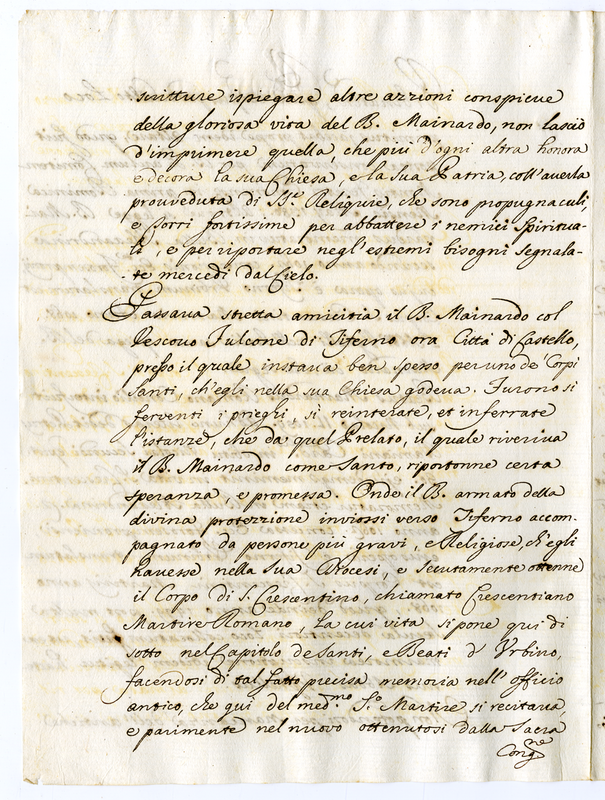 scritture ispiegare altre azzioni conspicue
della gloriosa vita del B. Mainardo, non lasciò
d'imprimere quella, che più d'ogni altra honora
e decora la sua Chiesa, e la sua Patria, coll'averla
prouveduta di SS.e Reliquie, che sono propugnaculi,
e Torri fortissime per abbattere i nemici Spiritua-
li, e per riportare negl'estremi bisogni segnala-
te mercedi dal Cielo.
Passava stretta amicitia il B. Mainardo col
Vescovo Fulcone di Tiferno ora Città di Castello,
presso il quale instava ben spesso per uno de' Corpi
Santi, ch'egli nella sua Chiesa godeva. Furono si
ferventi i prieghi, sì reinterate, et inferrate
l'istanze, che da quel Prelato, il quale riveriva
il B. Mainardo come Santo, riportonne certa
speranza, e promessa. Onde il B. armato della
divina protezzione inviossi verso Tiferno accom-
pagnato da persone più gravi, e Religiose, ch'egli
havesse nella sua Diocesi, e secutamente ottenne
il Corpo di S. Crescentino, chiamato Crescentiano
Martire Romano, la cui vita si pone qui di
sotto nel Capitolo de Santi, e Beati d'Urbino,
facendosi di tal fatto precisa memoria nell'officio
antico, che qui del med.mo S.o Martire si recitava,
e parimente nel nuovo ottenutosi dalla Sacra
Cong.ne